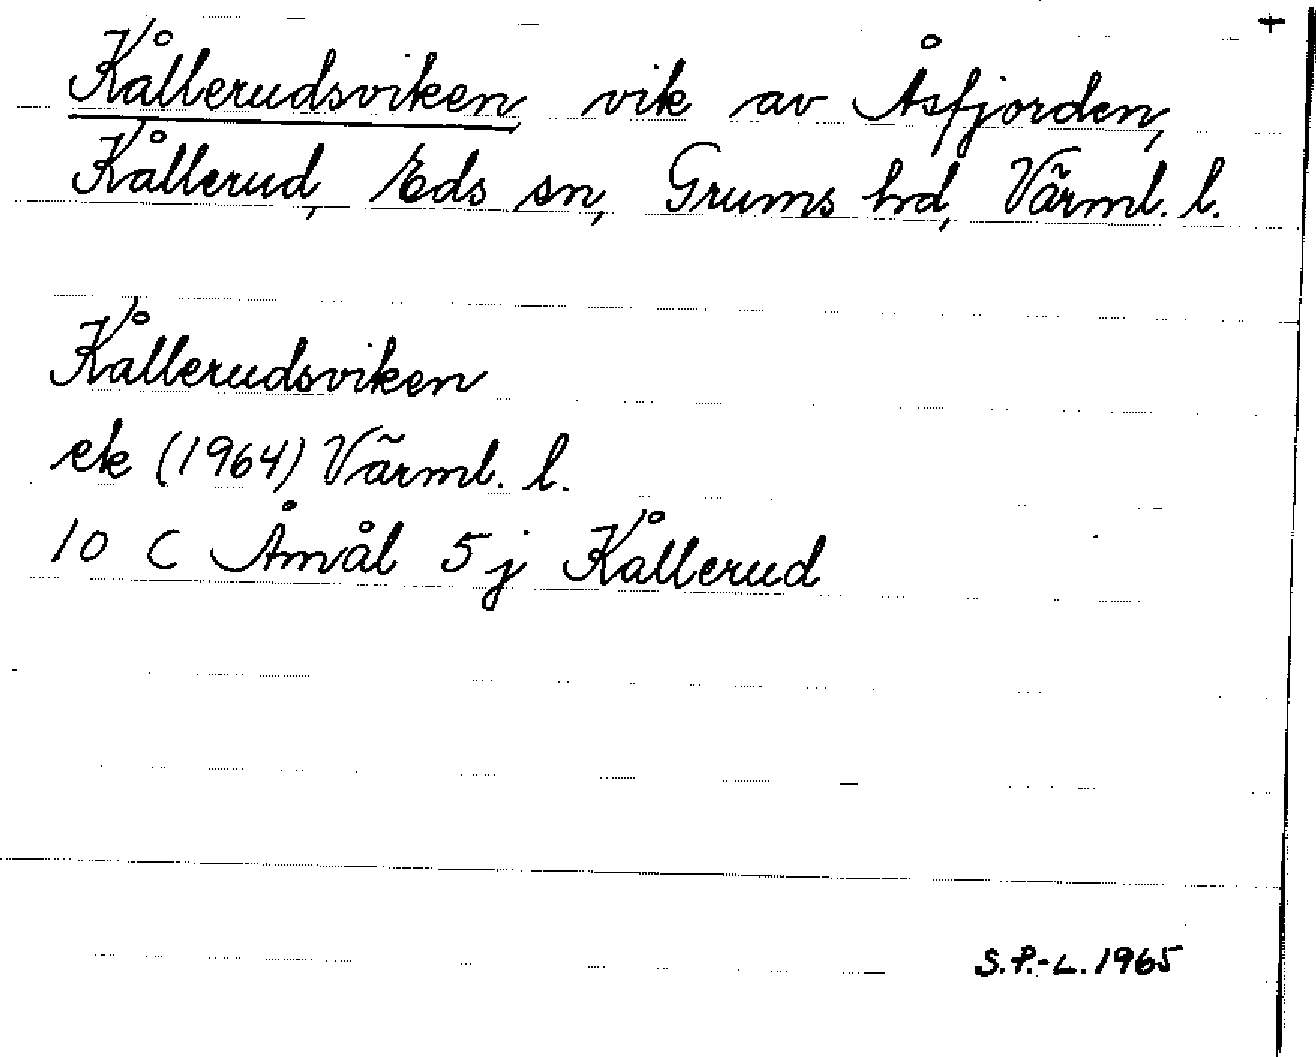 +
Kållerudsviken vik av Åsfjorden,
Kållerud, Eds sn, Grums hd, Värml. l.
Kållerudsviken
ek (1964) Värml. l.
10 C Åmål 5 j Kållerud
S.P.-L. 1965